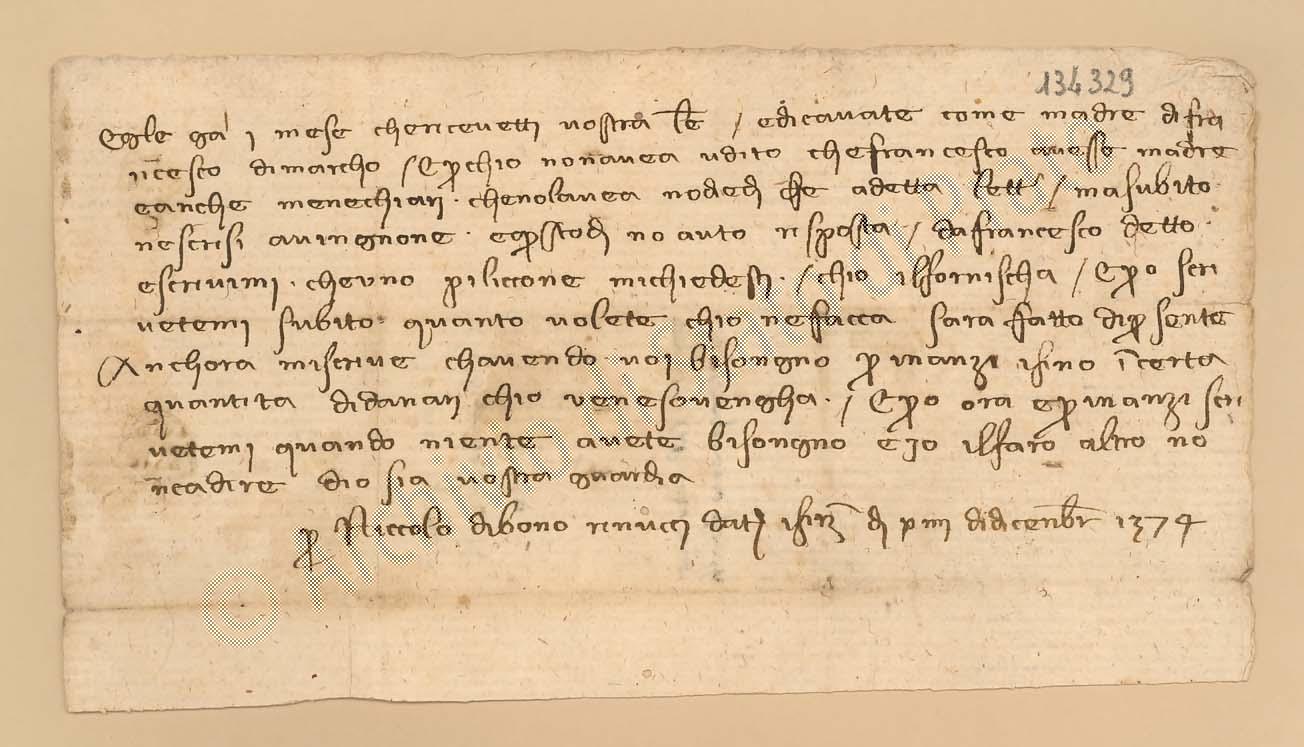 134329
Egle ga i mese che ricevetti vostra lr̅e / e dicavate come madre di fra
n̅cesco di marcho / E p̱chio non avea udito che francesco avesse madre
e anche mene chiari · che no l avea no diedi fe a detta lett̅ / ma subito
ne scrisi a vingnone · e p̱ssto di no auto risposta / da francesco detto ·
e scrivimi · che uno piliccone mi chiedesti · / chio il fornischa / E p̱o scri
vetemi subito · quanto volete chio ne facca sara fatto di p̱sente
Anchora mi scrive ch avendo voi bisongno p̱ inanzi i sino i̅ certa
quantita di danari chio ve ne sovengha · / E p̱o ora e p̱ inanzi scri
vetemi quando niente avete bisongno e io il faro altro no
n̅ ca dire dio sia vostra guardia
p̱ Niccolo di bono rinucci dat i fir̅ di di dicenbr̅ 1374
© Archivio di Stato di Prato